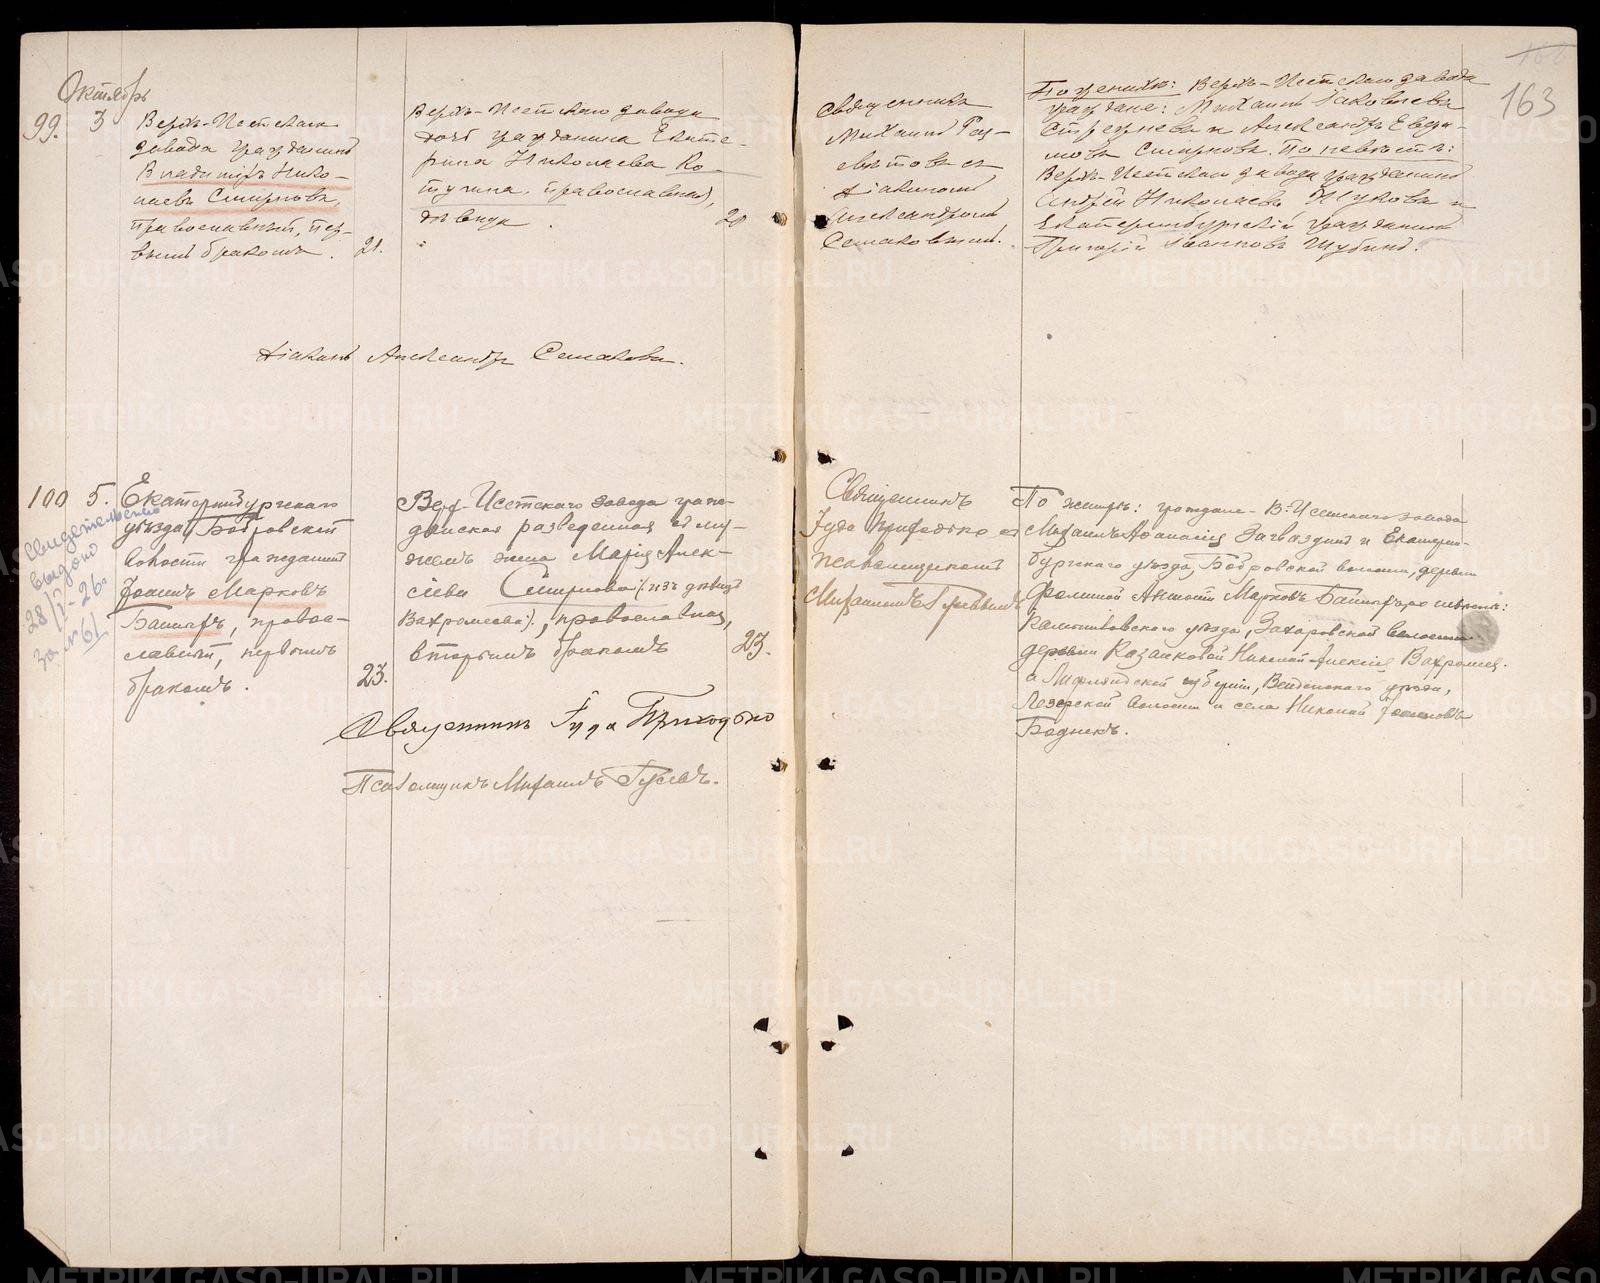 Октябрь
163
99. 3
Верхъ-Исетскаго
завода гражданинъ
Владимiръ Нико-
лаевъ Смирновъ,
православный, пер-
вымъ бракомъ.
21.
Верхъ-Исетскаго завода
дочь гражданина Екате-
рина Николаева Ко-
тугина, православная,
дѣвица
20
Священникъ
Михаилъ
съ
дiакономъ
Александромъ
Семаковымъ.
По женихѣ: Верхъ-Исетскаго завода
граждане: Михаилъ Iаковлевъ
и Александръ Евѳи-
мовъ Смирновъ. По невѣстѣ:
Верхъ-Исетскаго завода гражданинъ
Андрей Николаевъ и
Екатеринбургскiй гражданинъ
Григорiй Iоанновъ Шубинъ.
Дiаконъ Александръ Семаковъ.
100 5.
Екатеринбургскаго
уѣзда, Бобровской
волости гражданинъ
Iоаннъ Марковъ
православный, первымъ
бракомъ.
23.
Свидетельство
выдано
28/I-26 г.
за № 61
Верх-Исетскаго завода граж-
данская разведенная съ му-
жемъ жена Марiя Алек-
сiева Смирнова (изъ дѣвицъ
Вахромеева), православная,
вторымъ бракомъ
23.
Священникъ
Iуда Приходько съ
псаломщикомъ
Михаиломъ Гусевымъ
По женихѣ: граждане В-Исетскаго завода
Михаилъ Аѳанасiевъ Загваздинъ и Екатерин-
бургскаго уѣзда, Бобровской волости, деревни
Марковъ
уѣзда, Захаровской волости
деревни Казанковой Николай Алексiевъ Вахромеев.
а Лифляндской губернiи, Венденскаго уѣзда,
волости и села Николай Iоанновъ
Священникъ Iуда Приходько
Псаломщикъ Михаилъ Гусевъ.
METRIKI.GASO-URAL.RU